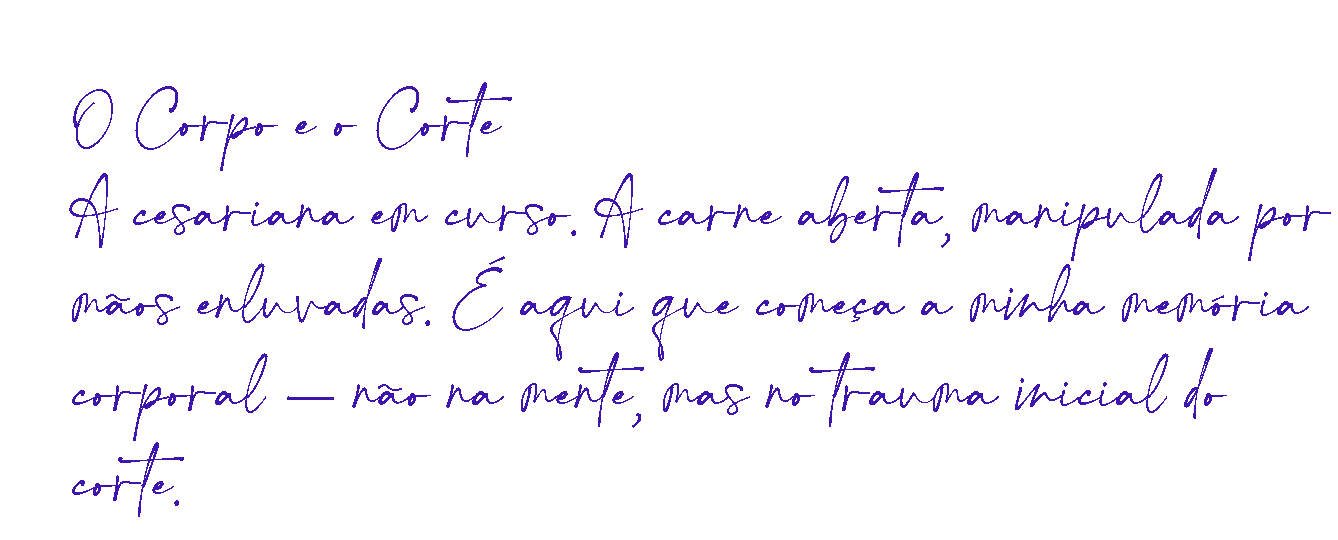 O Corpo e o Corte
A cesariana em curso. A carne aberta, manipulada por
mãos enluvadas. É aqui que começa a minha memória
corporal — não na mente, mas no trauma inicial do
corte.